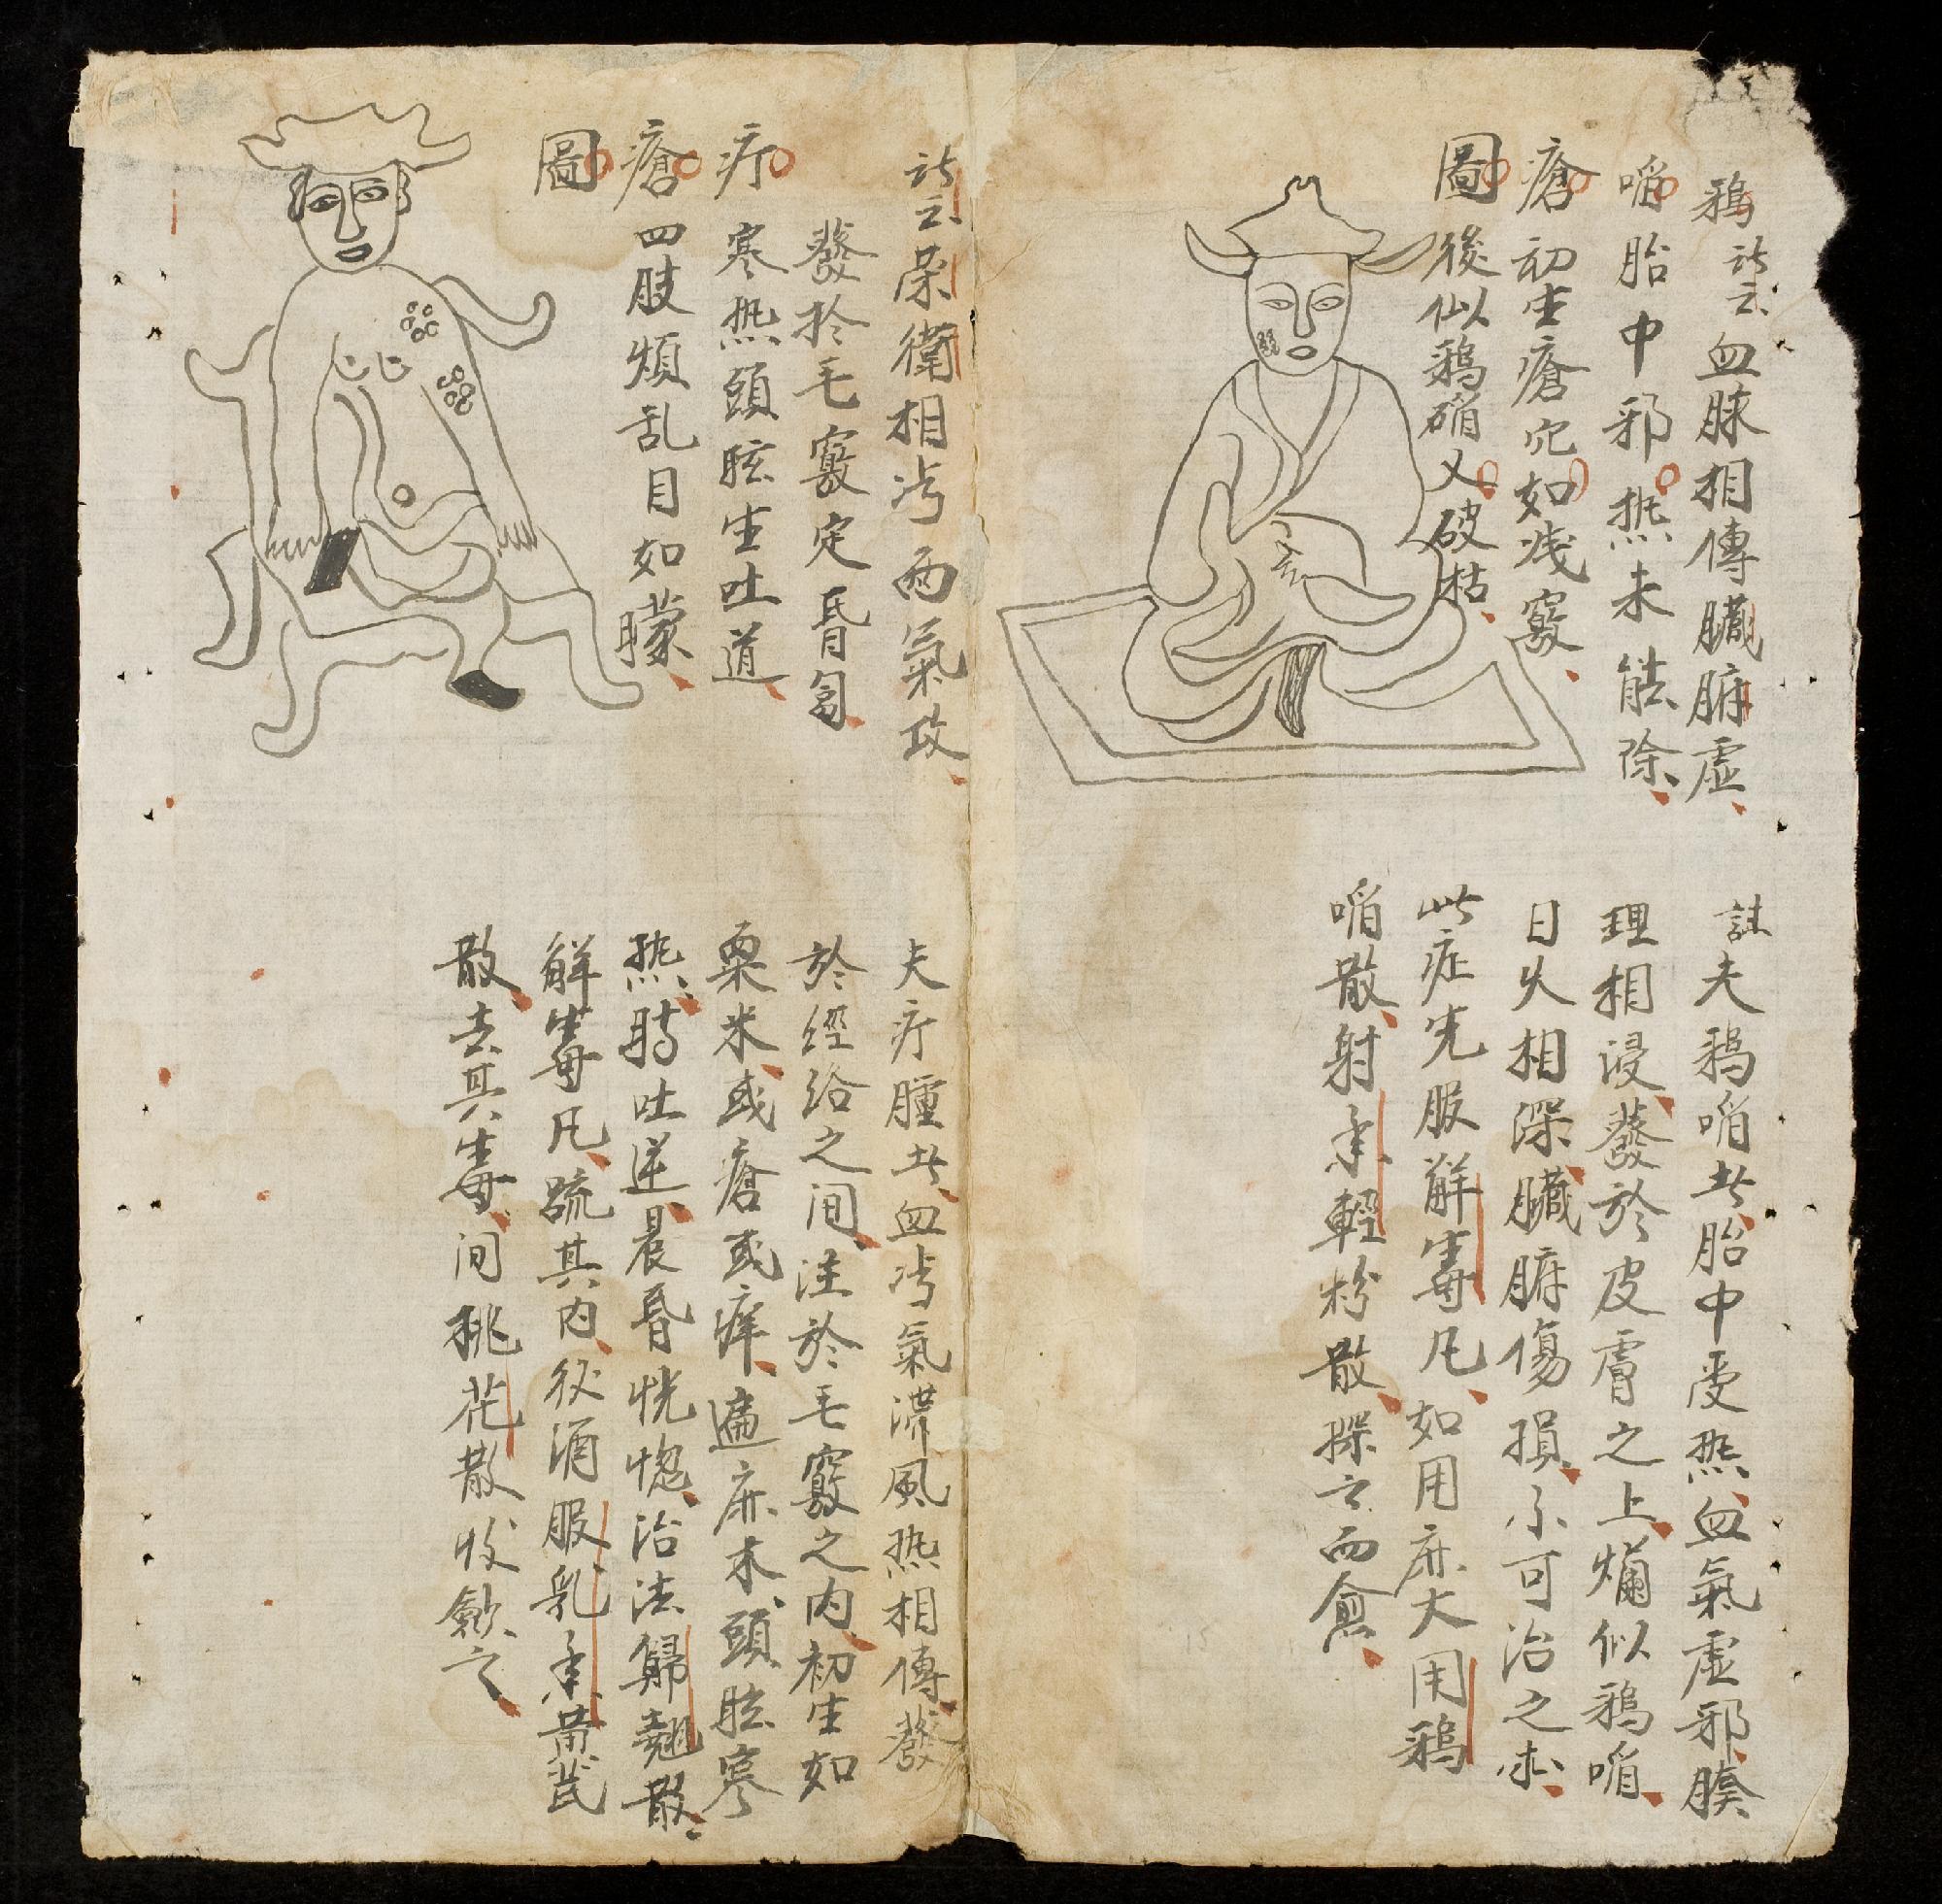 鵶訣云血脉相傳臟腑虛
啗胎中邪热未能除
瘡初生瘡穴如浅竅
圖後似鵶啗又破枯
註夫鵶啗者胎中受热血氣虛邪腠
理相浸發於皮膚之上爛似鵶啗
日久相深臟腑傷損不可治之求
此症先服解毒凡如用麻大用鵶
啗散射香輕粉散搽之而愈
訣云荣衛相冯两氣攻
發於毛竅定昏芻
疔寒热頭眩生吐道
瘡四肢煩乱目如矇
圖
夫疔腫者血冯氣滞風热相傳發
於經给之间注於毛竅之内初生如
粟米或瘡或痒遍麻木頭眩寒
热時吐逆晨昏恍惚治法歸翘散
解毒凡疏其内後酒服乳香黄茋
散去其毒间桃花散收歛之